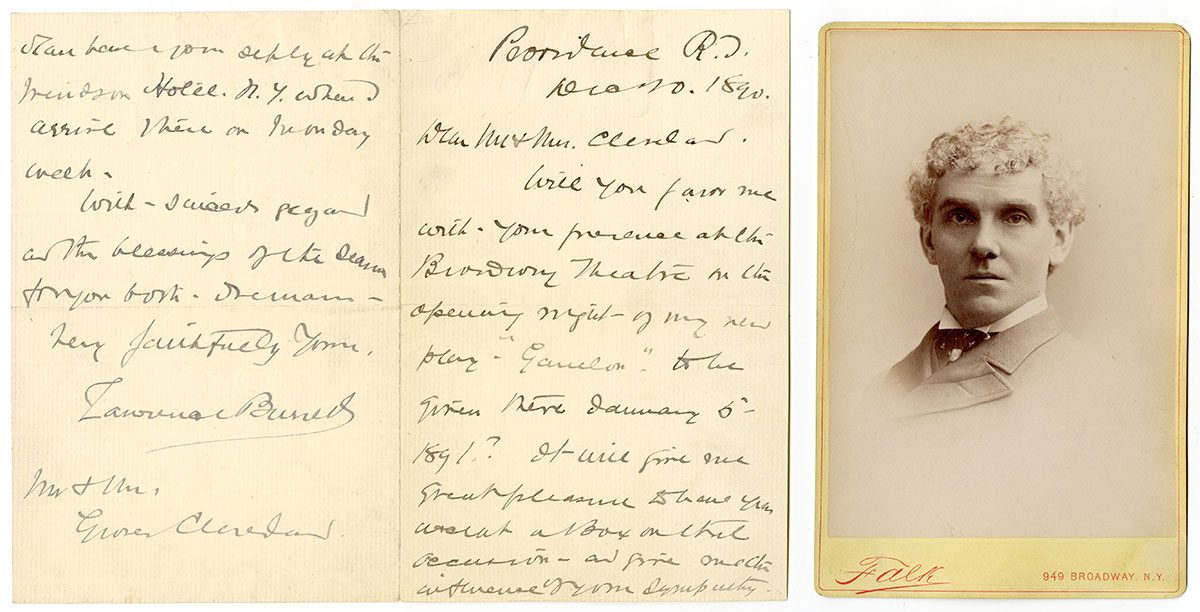 Providence R.I.
Dec 20. 1890.
Dear Mr & Mrs. Cleveland.
Will you favor me
with - your presence at the
Broadway Theatre on the
opening night - of my new
play - "Ganelon" - to be
given there January 5 -
1891.? It will give me
great pleasure to have you
accept a Box on that
occasion - and give me the
influence of your sympathy.
have your reply at the
Windsor Hotel. N.Y. when I
arrive there on Monday
week -
With - sincere regard
and the blessings of the season
for you both - I remain -
Very faithfully Yours,
Lawrence Barrett
Mr & Mrs.
Grover Cleveland.
Falk
949 BROADWAY, N.Y.